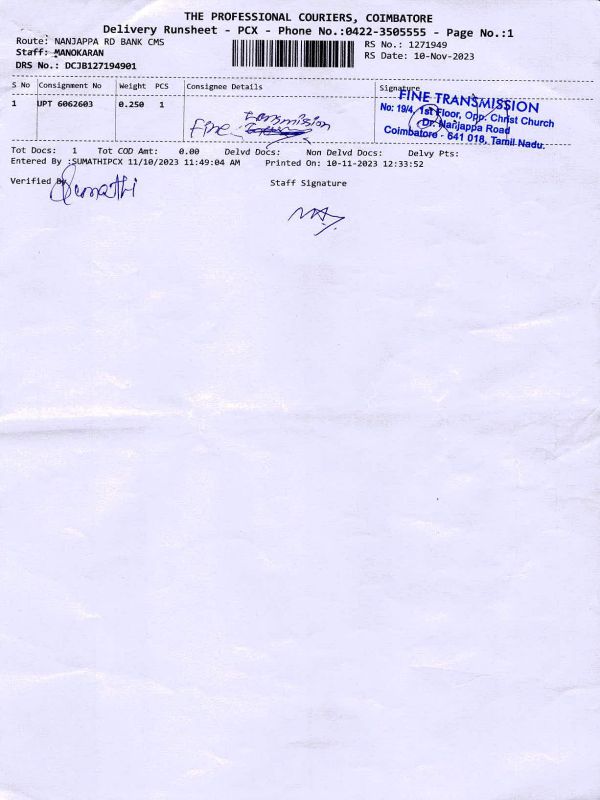 THE PROFESSIONAL COURIERS, COIMBATORE
Delivery Runsheet - PCX - Phone No.:0422-3505555 - Page No.:1
Route: NANJAPPA RD BANK CMS
RS No.: 1271949
Staff: MANOKARAN
RS Date: 10-Nov-2023
DRS No.: DCJB127194901
S No Consignment No Weight PCS Consignee Details Signature
1 UPT 6062603 0.250 1
Fine Transmission
FINE TRANSMISSION
No: 19/4, 1st Floor, Opp. Christ Church
Dr. Nanjappa Road
Coimbatore - 641 018, Tamil Nadu.
Tot Docs: 1 Tot COD Amt: 0.00 Delvd Docs: Non Delvd Docs: Delvy Pts:
Entered By :SUMATHIPCX 11/10/2023 11:49:04 AM Printed On: 10-11-2023 12:33:52
Verified By Sumathi
Staff Signature